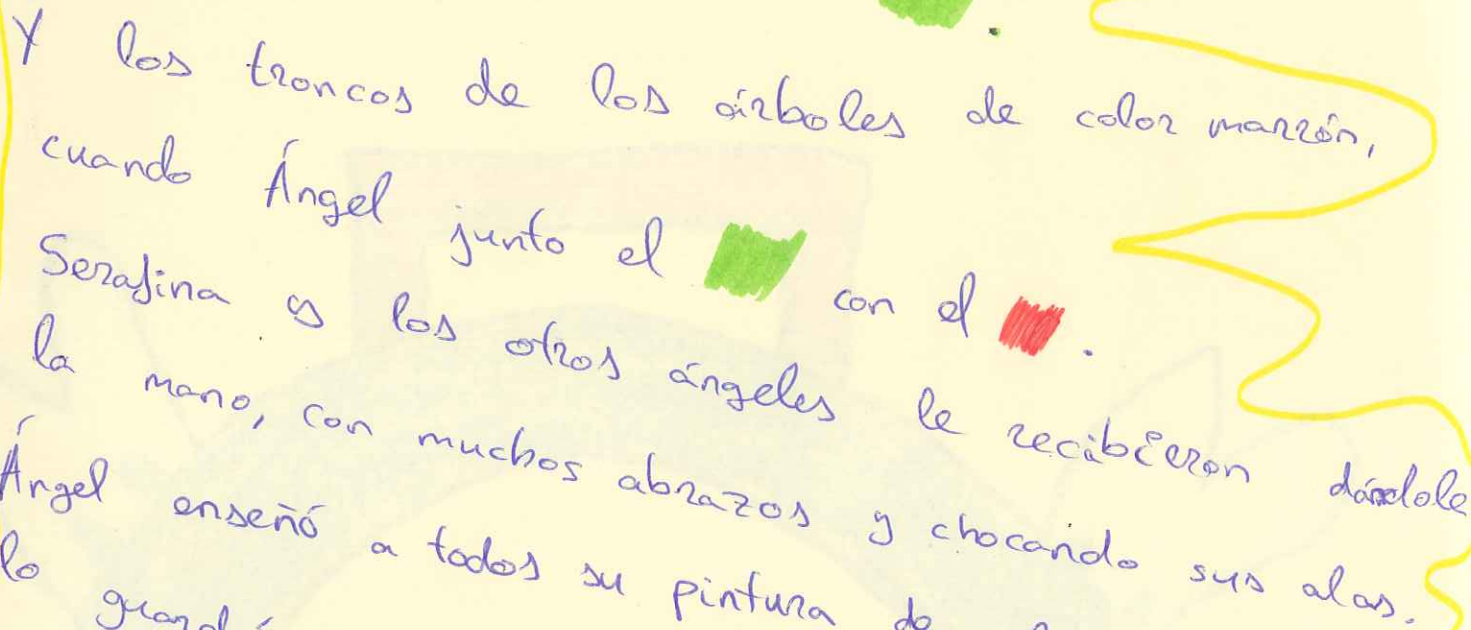 Y los troncos de los árboles de color marrón,
cuando Ángel junto el con el .
Serafina y los otros ángeles le recibieron dándole
la mano, con muchos abrazos y chocando sus alas.
Ángel enseñó a todos su pintura de
lo guardó